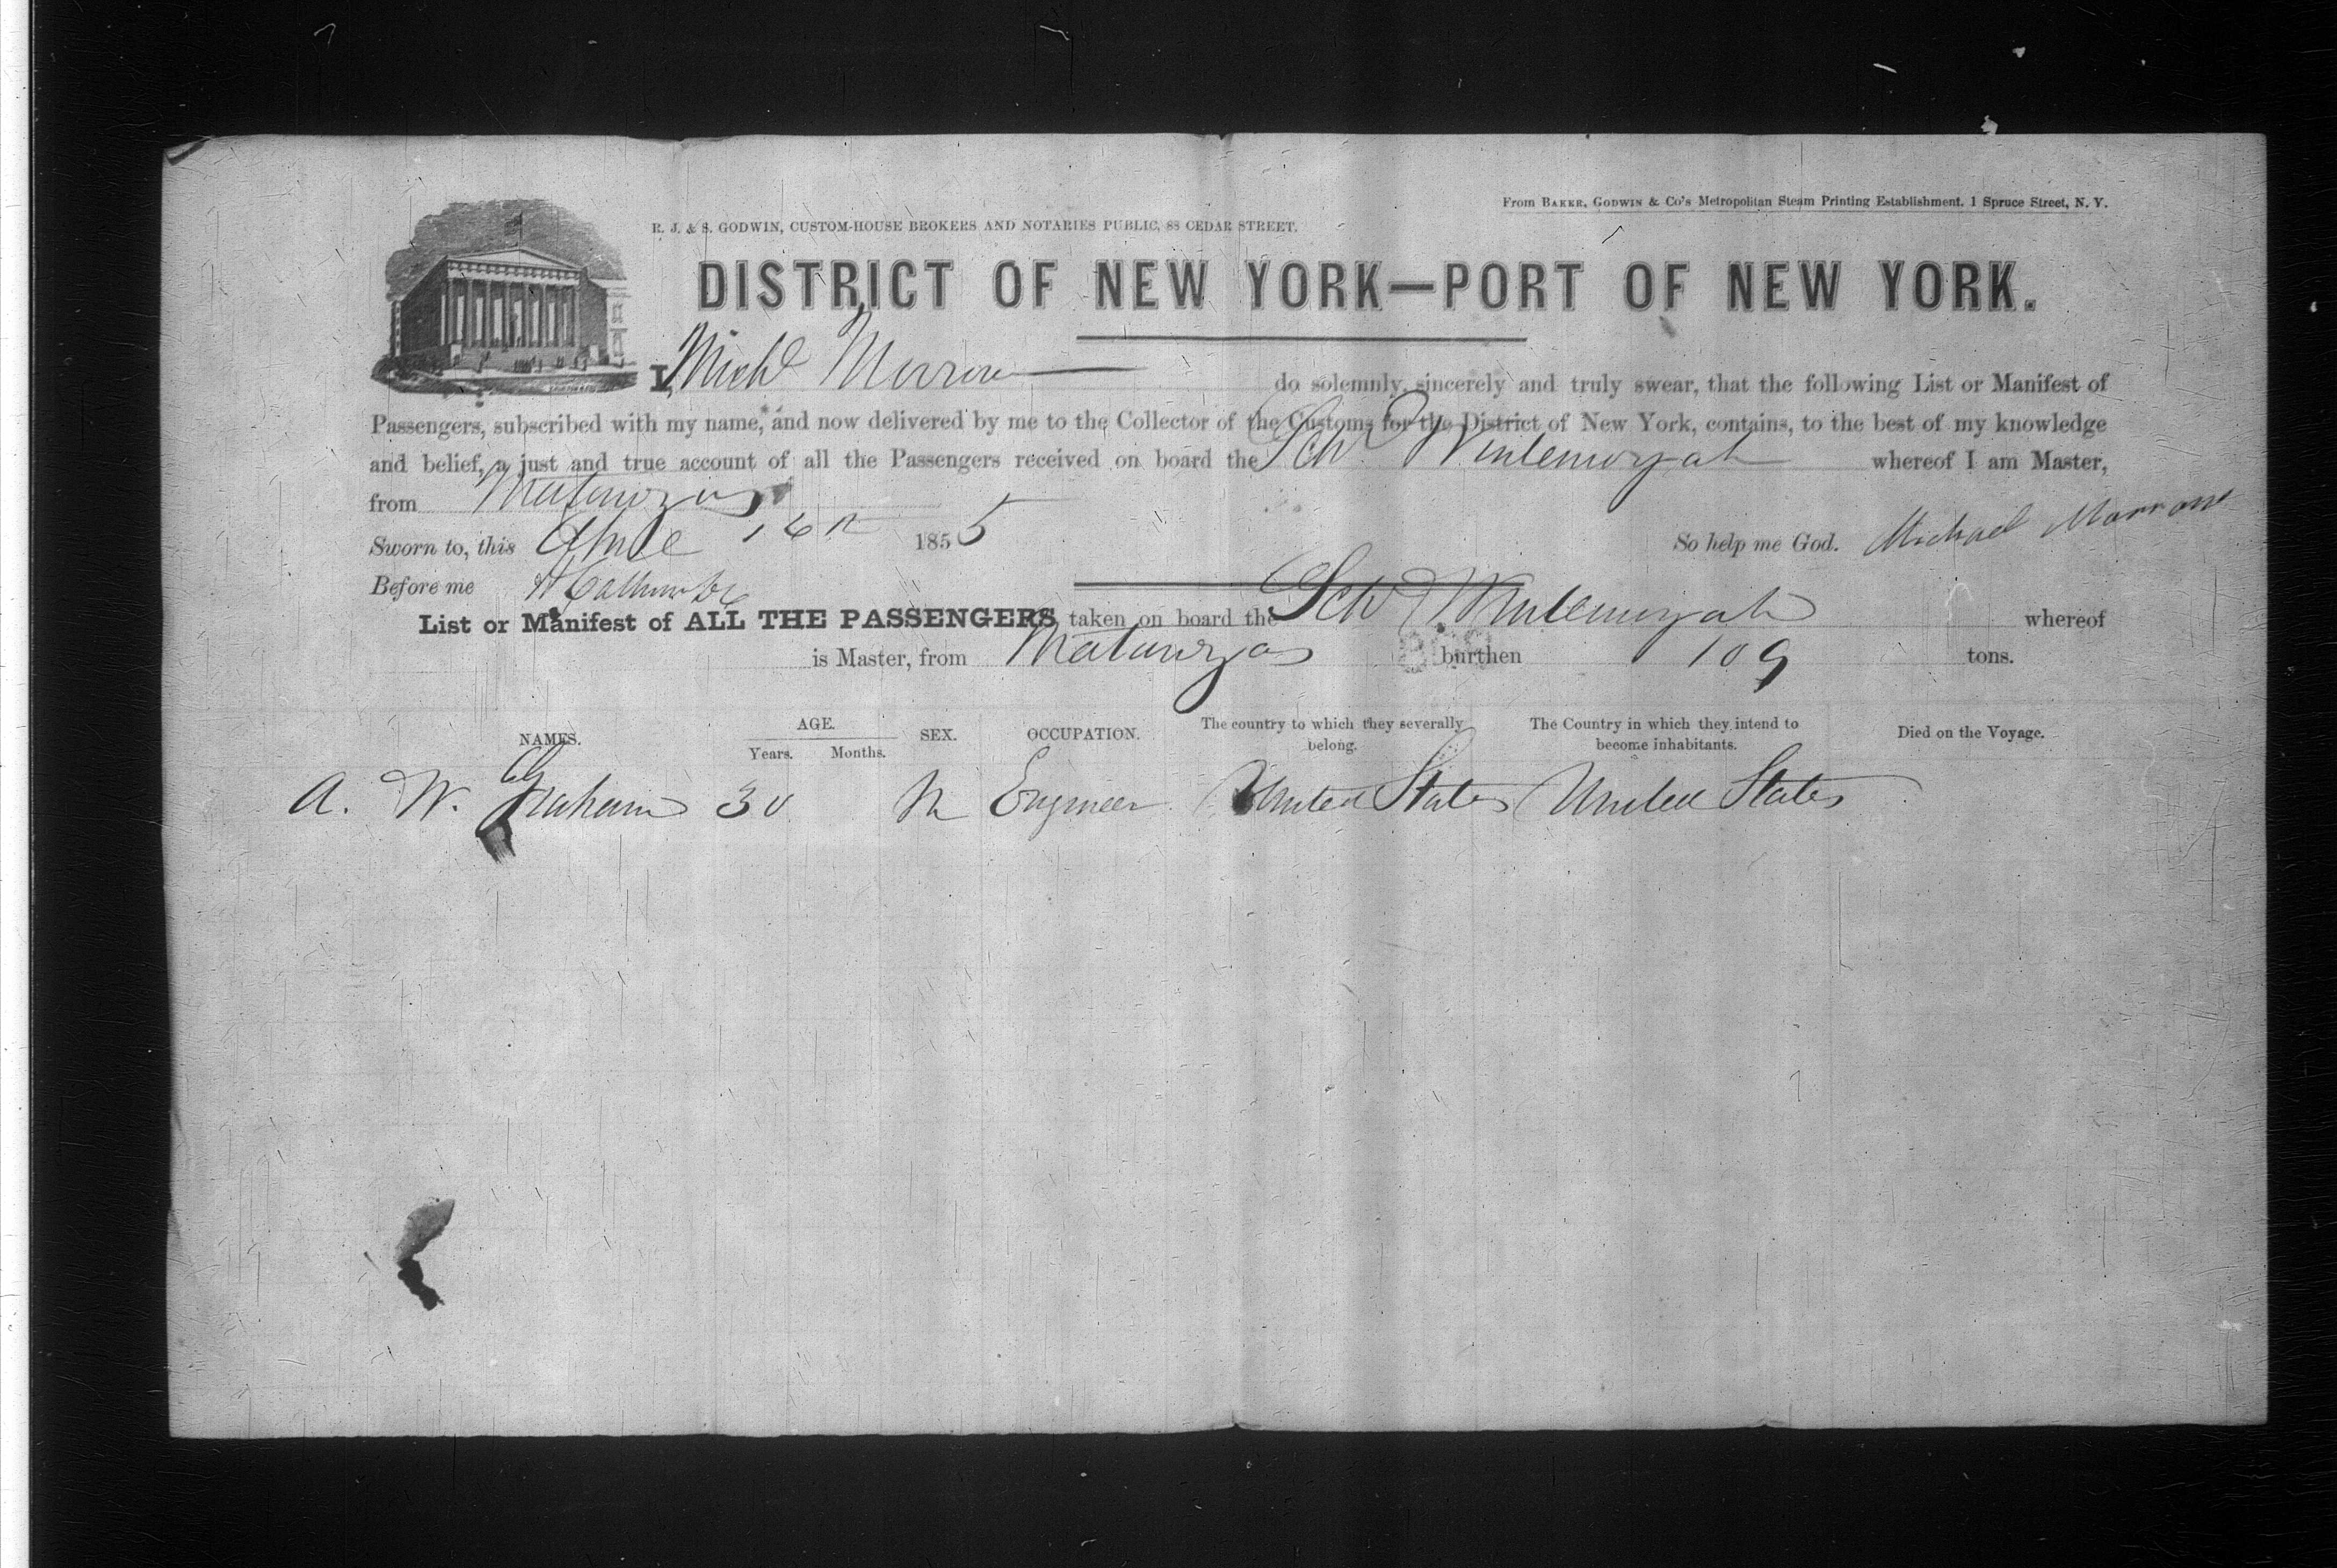 From BAKER, GODWIN & Co's Metropolitan Steam Printing Establishment, 1 Spruce Street, N. Y.
R. J. & S. GODWIN, CUSTOM-HOUSE BROKERS AND NOTARIES PUBLIC, 88 CEDAR STREET.
DISTRICT OF NEW YORK—PORT OF NEW YORK.
I, Michl Morrow do solemnly, sincerely and truly swear, that the following List or Manifest of
Passengers, subscribed with my name, and now delivered by me to the Collector of the Customs for the District of New York, contains, to the best of my knowledge
and belief, a just and true account of all the Passengers received on board the Schr whereof I am Master,
from Matanzas
Sworn to, this April 16th 1855 So help me God. Michael Morrow
Before me
List or Manifest of ALL THE PASSENGERS taken on board the Schr whereof
is Master, from Matanzas burthen 109 tons.
NAMES. AGE. Years. Months. SEX. OCCUPATION. The country to which they severally belong. The Country in which they intend to become inhabitants. Died on the Voyage.
A. W. Graham 30 M Engineer United States United States